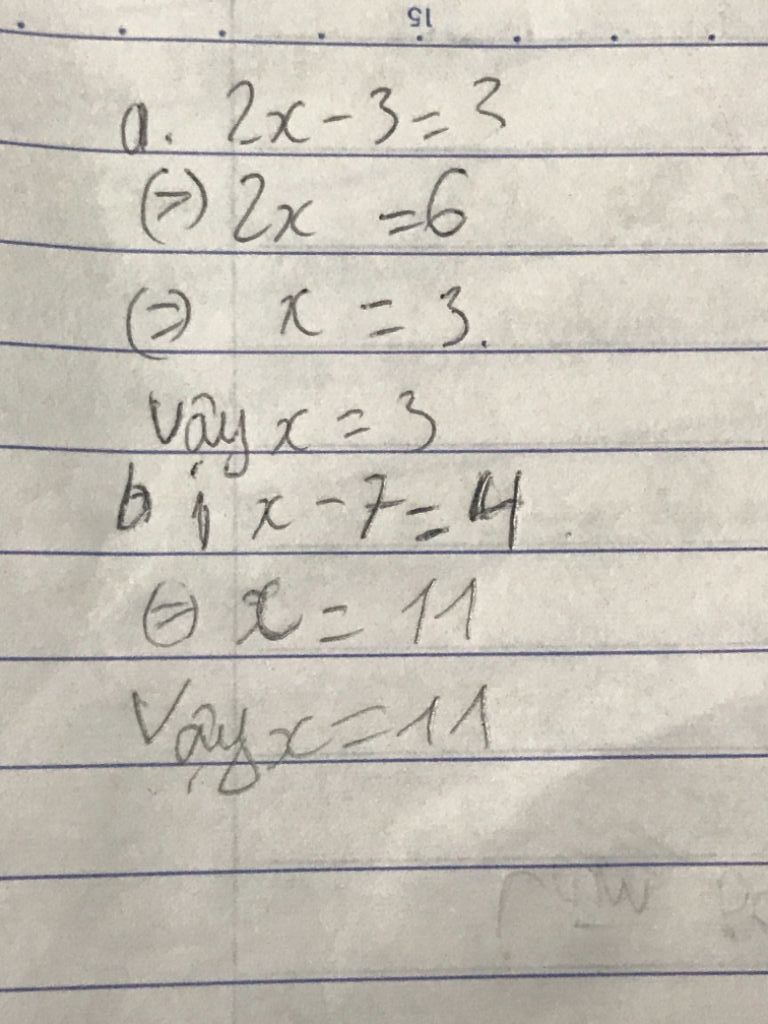 15
a. 2x - 3 = 3
(=>) 2x = 6
(=>) x = 3.
Vậy x = 3
b; x - 7 = 4
(=) x = 11
Vậy x = 11